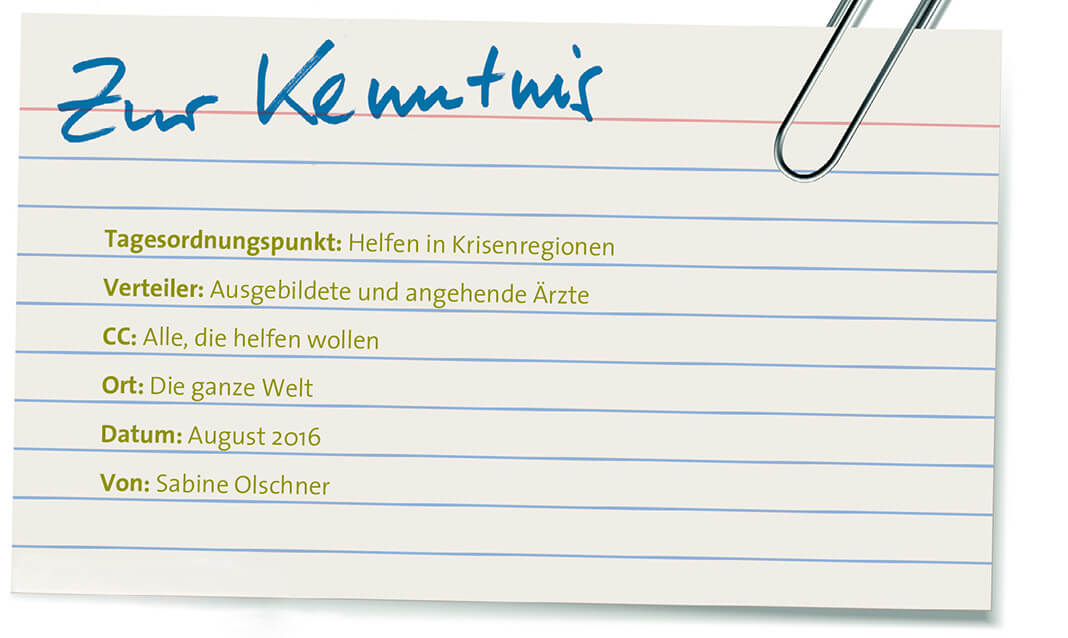 Zur Kenntnis
Tagesordnungspunkt: Helfen in Krisenregionen
Verteiler: Ausgebildete und angehende Ärzte
CC: Alle, die helfen wollen
Ort: Die ganze Welt
Datum: August 2016
Von: Sabine Olschner